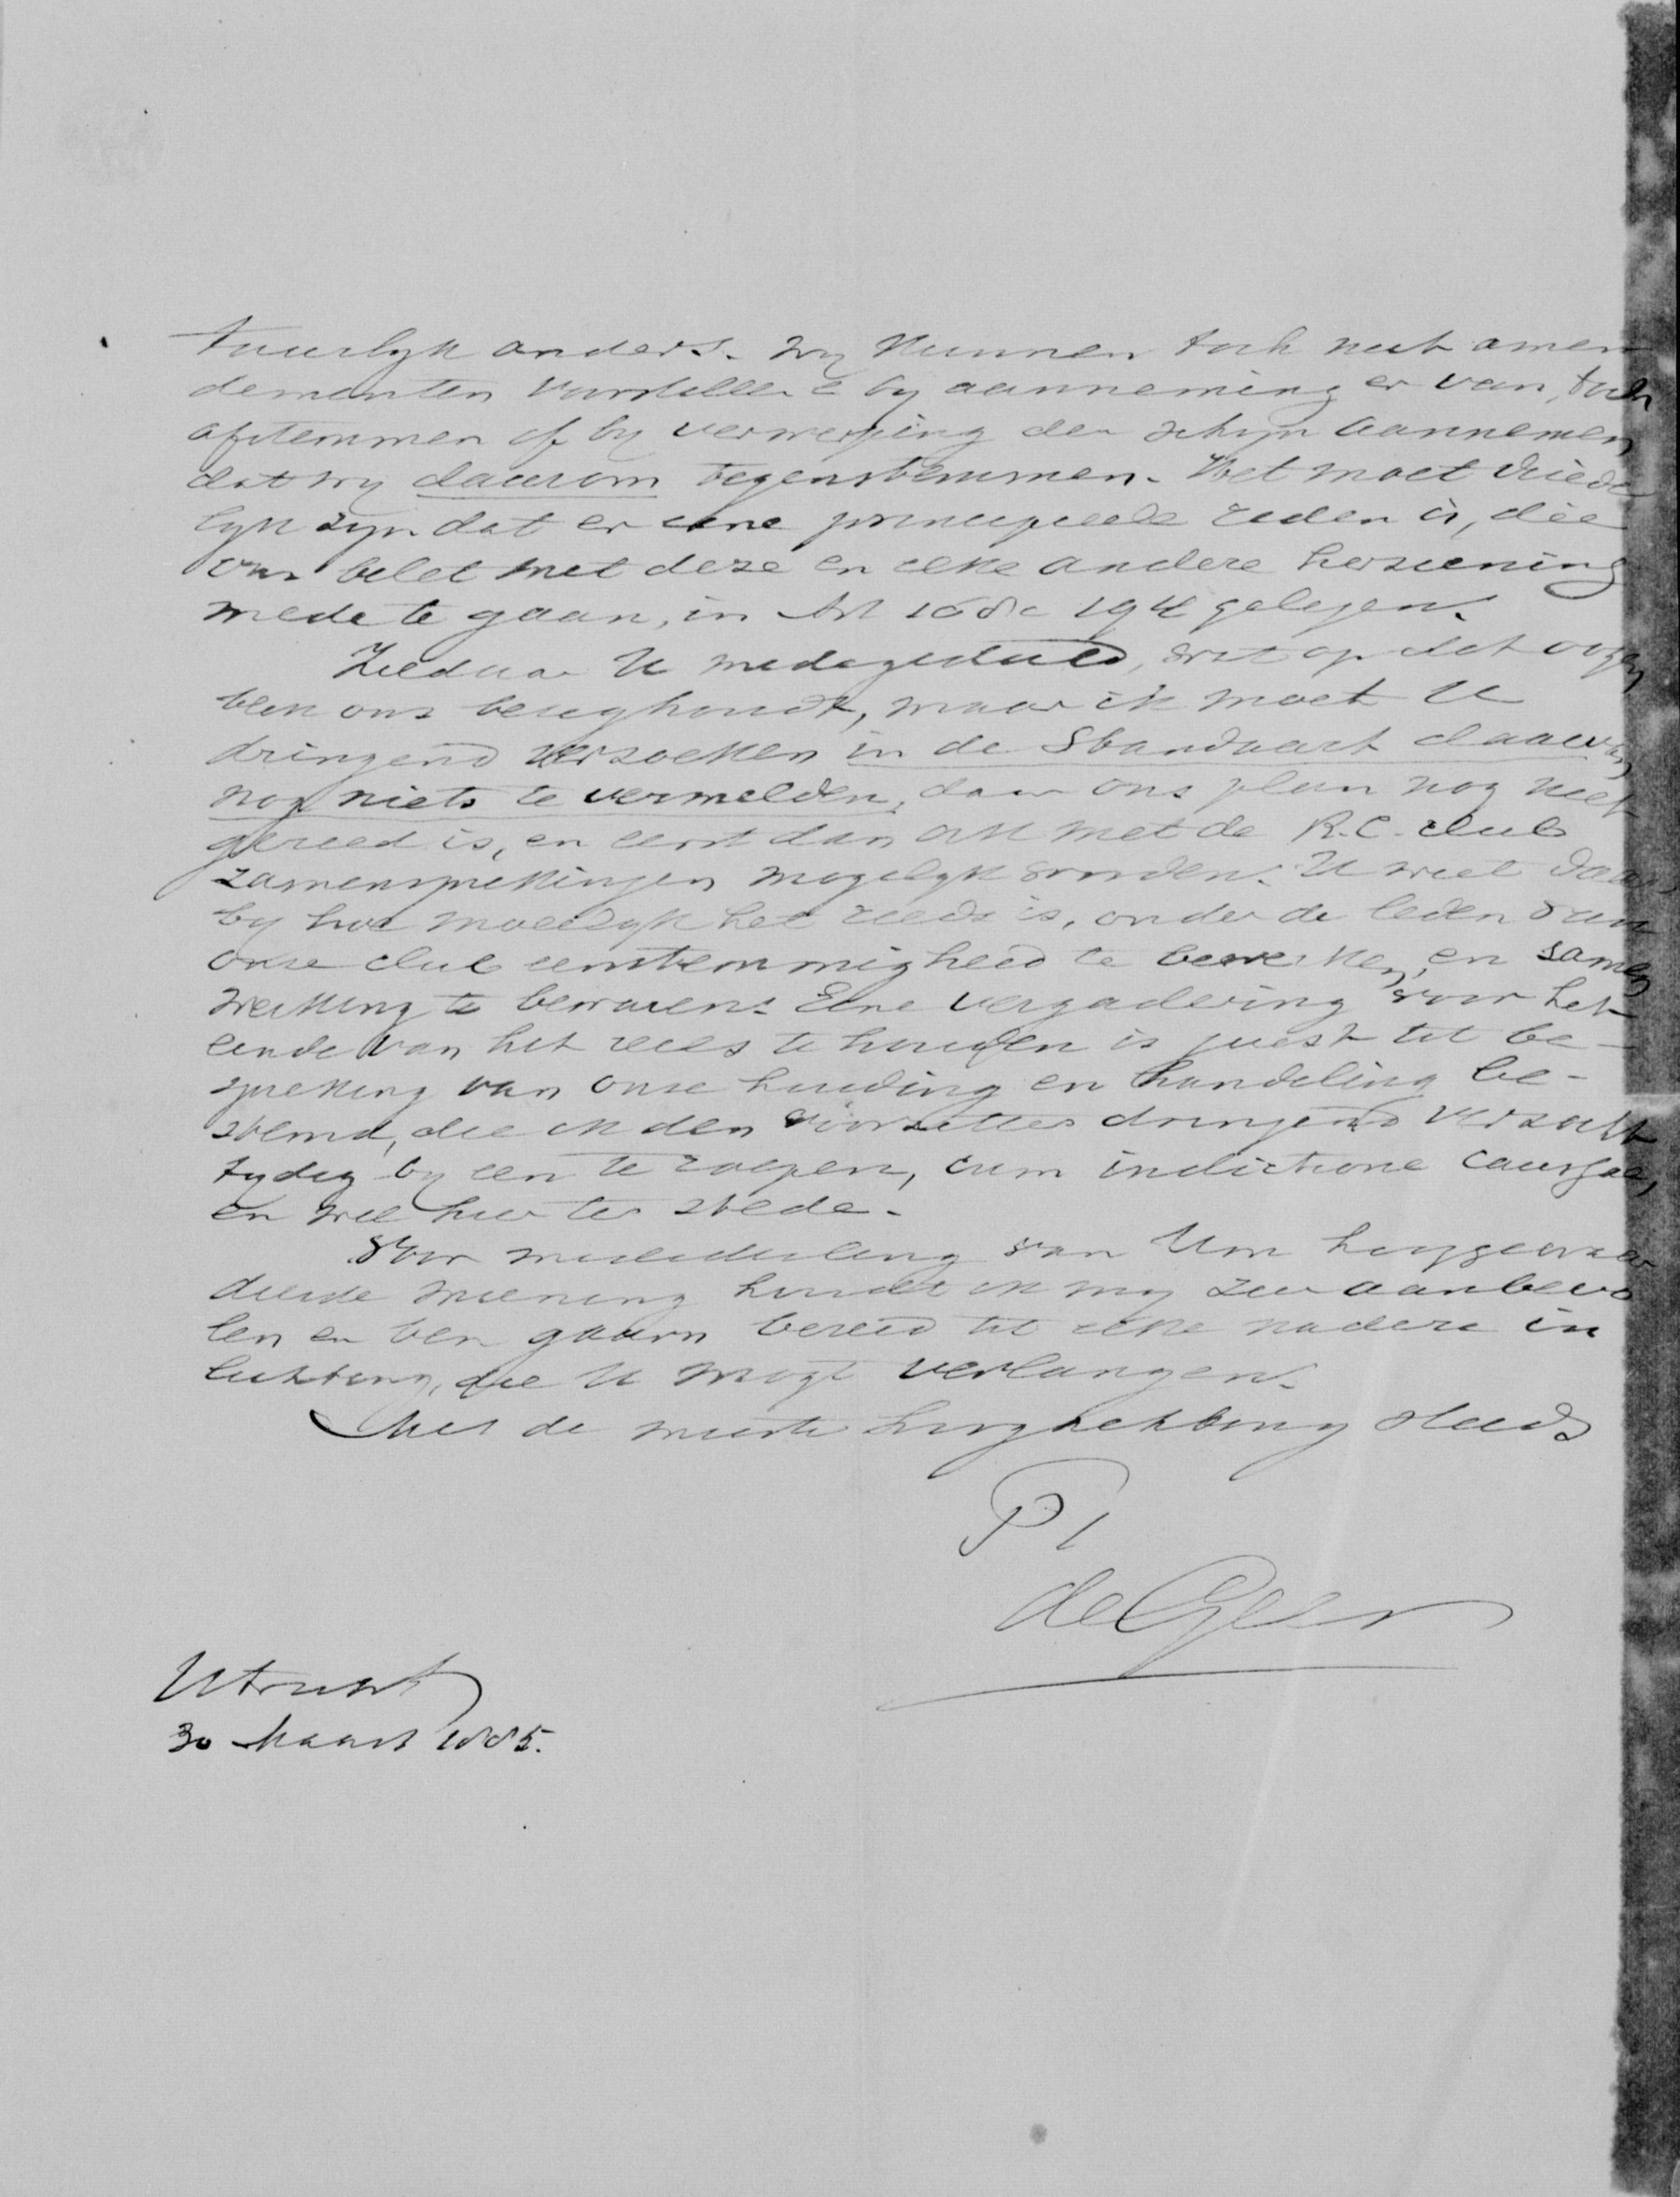 tuurlyk anders. Wy kunnen toch niet amen
dementen voorstellen & by aanneming er van, toch
afstemmen of by verwerping den schyn aannemen
dat wy daarom tegenstemmen. Het moet duide
lyk zyn dat er eene principieele reden is, die
ons belet met deze en elke andere herziening
mede te gaan, in Art 168 & 194 gelegen.
Ziedaar U medegedeeld, wat op dit oogen
blik ons bezighoudt, maar ik moet U
dringend verzoeken in de Standaart daarvan
nog niets te vermelden, daar ons plan nog niet
gereed is, en eerst dan ook met de R.C. club
zamensprekingen mogelyk worden. U weet daar
by hoe moeielyk het reeds is, onder de leden van
onze club eenstemmigheid te bewerken, en samen
werking te bewaren. Eene vergadering voor het
einde van het reces te houden is juist tot be-
spreking van onze houding en handeling be-
stemd, die ik den voorzitter dringend verzocht
tydig by een te roepen, cum indictione causae,
en wel hier ter stede.
Voor mededeeling van Uw hooggewaar
deerde meening houde ik my zeer aanbevo
len en ben gaarn bereid tot elke nadere in
lichting, die U mogt verlangen.
Met de meeste hoogachting steeds
de Geer
Utrecht
30 Maart 1885.